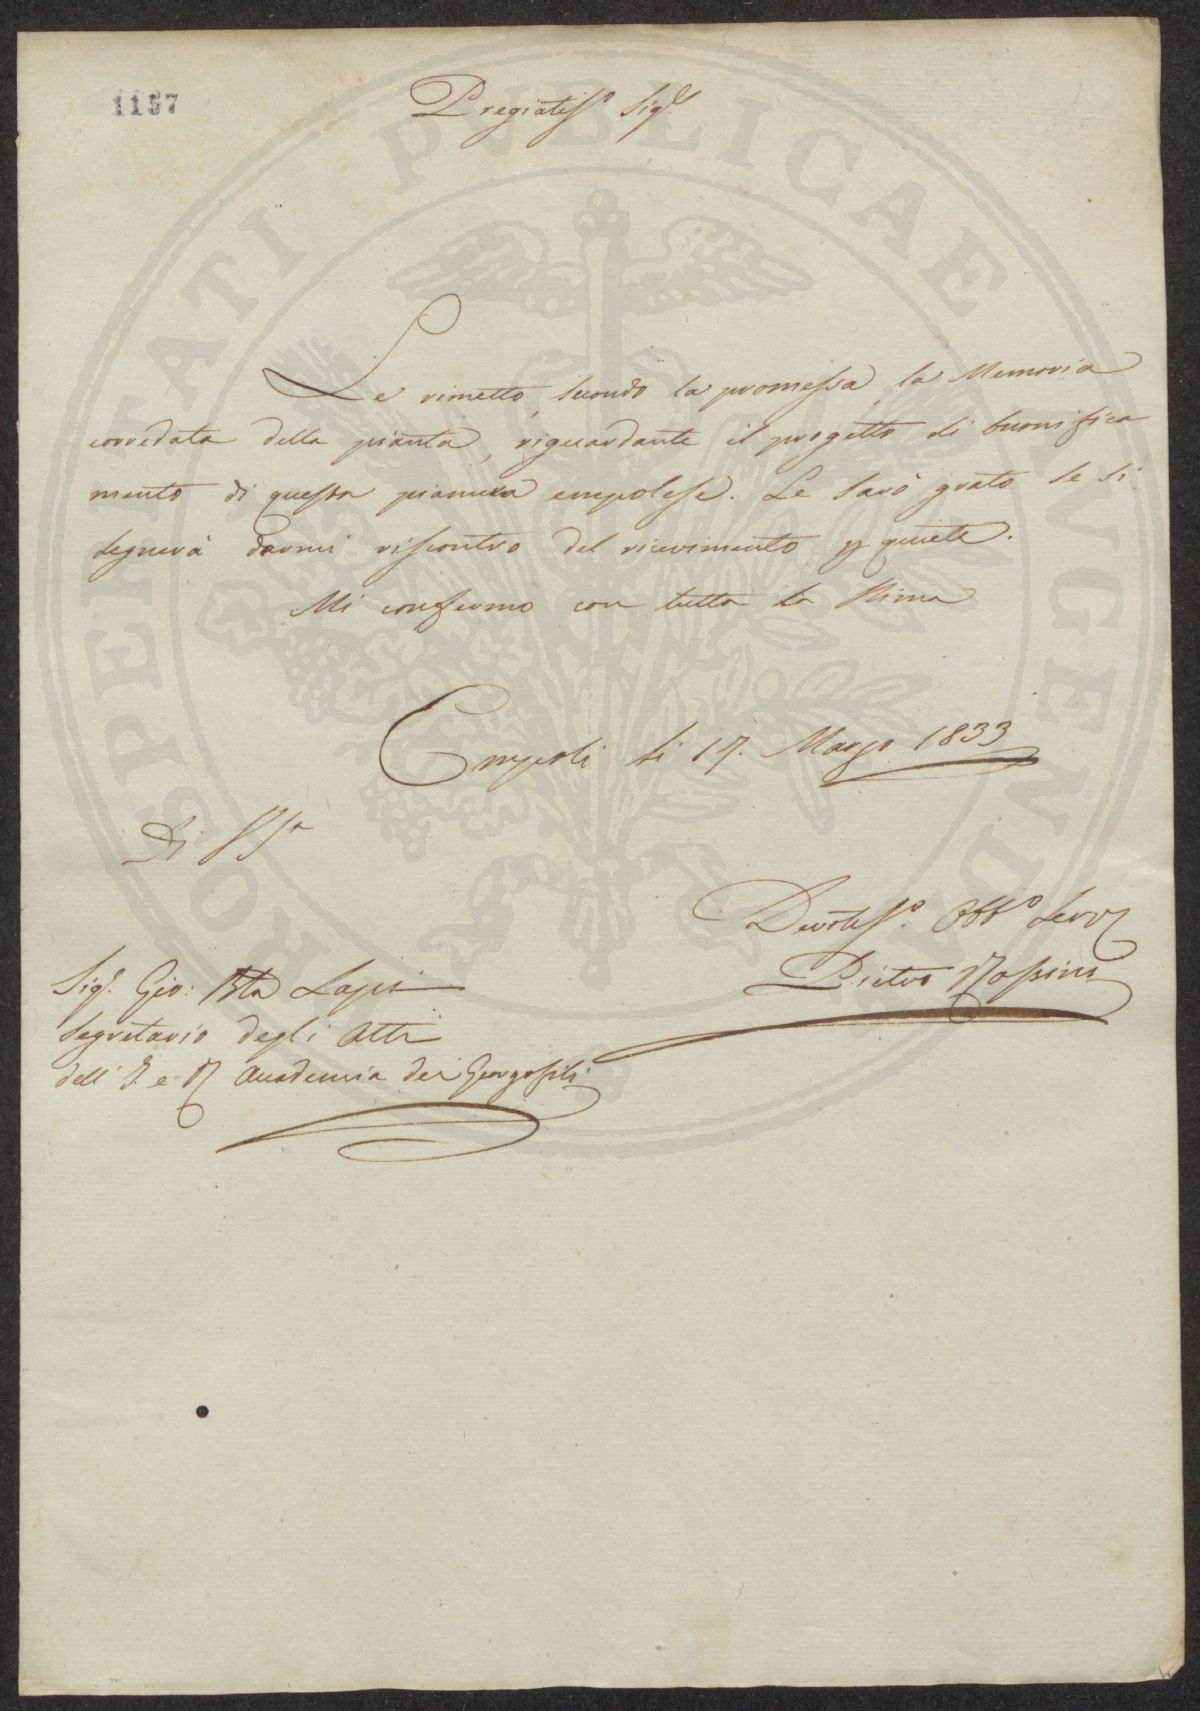 1157
Pregiatiss.o Sig.r
Le rimetto, secondo la promessa, la Memoria
corredata della pianta, riguardante il progetto di buonifica
mento di questa pianura empolese. Le sarò grato se si
degnerà darmi riscontro del ricevimento p quiete.
Mi confermo con tutta la stima
Empoli li 17. Marzo 1833
Di VS.a
Devotiss.o Obb.o Serv.
Pietro Rossini
Sig.r Gio: Bta Lapi
Segretario degli Atti
dell' I. e R Accademia dei Georgofili
PROSPERITATI PUBLICAE AUGENDAE